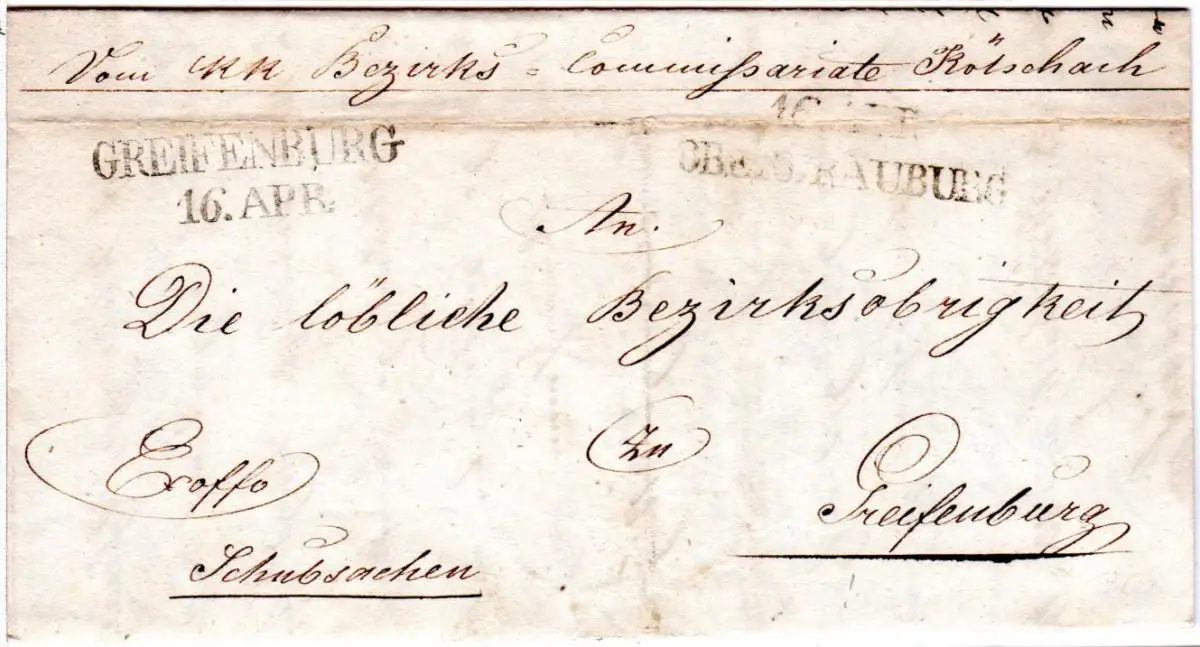 Vom KK Bezirks = Commißariate Kötschach
GREIFENBURG
16. APR.
16
OBERDRAUBURG
An.
Die löbliche Bezirksobrigkeit
Zu
Greifenburg
Exoffo
Schubsachen